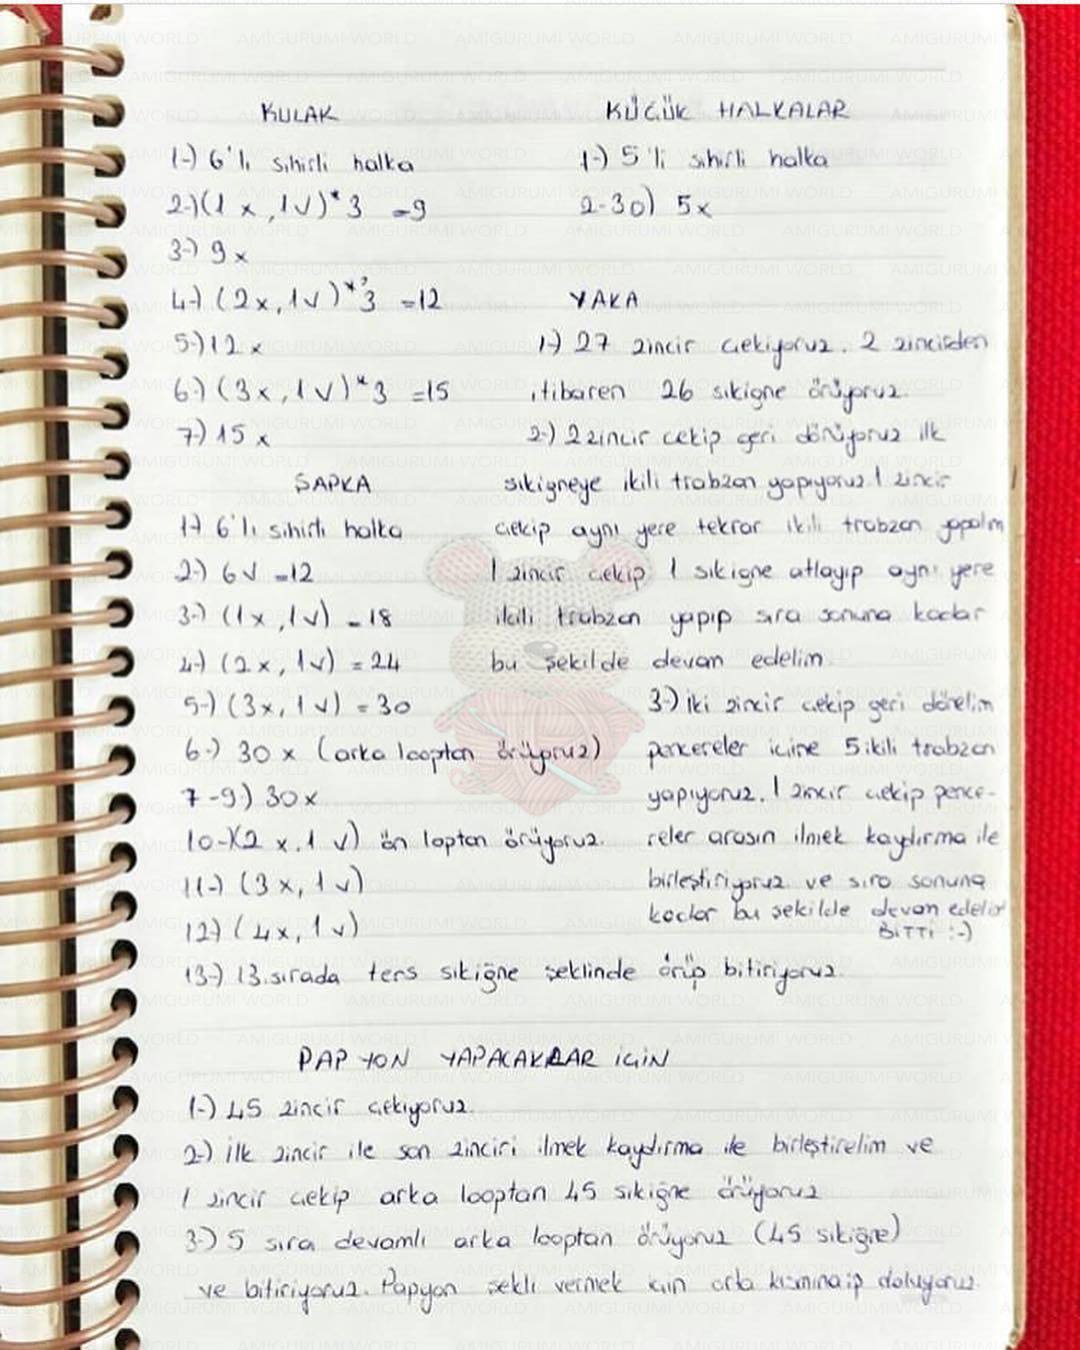 KULAK
1-) 6'lı sihirli halka
2-) (1 x, 1v)*3 =9
3-) 9x
4-) (2x, 1v)*3 =12
5-) 12x
6-) (3x, 1v)*3 =15
7-) 15x
ŞAPKA
1-) 6'lı sihirli halka
2-) 6v =12
3-) (1x, 1v) =18
4-) (2x, 1v) =24
5-) (3x, 1v) =30
6-) 30x (arka looptan örüyoruz)
7-9) 30x
10-) (2x. 1v) ön loptan örüyoruz.
11-) (3x, 1v)
12-) (4x, 1v)
13-) 13.sırada ters sıkiğne şeklinde örüp bitiriyoruz.
KÜÇÜK HALKALAR
1-) 5'li sihirli halka
2-30) 5x
YAKA
1-) 27 zincir çekiyoruz. 2 zincirden
itibaren 26 sıkigne örüyoruz.
2-) 2 zincir çekip geri dönüyoruz ilk
sıkigneye ikili trabzan yapıyoruz. 1 zincir
çekip aynı yere tekrar ikili trabzan yapalım
1 zincir çekip 1 sıkigne atlayıp aynı yere
ikili trabzan yapıp sıra sonuna kadar
bu şekilde devam edelim.
3-) İki zincir çekip geri dönelim
pencereler içine 5 ikili trabzan
yapıyoruz. 1 zincir çekip pence-
reler arasın ilmek kaydırma ile
birleştiriyoruz ve sıra sonuna
kadar bu şekilde devam edelim
BİTTİ :-)
PAPYON YAPACAKLAR İÇİN
1-) 45 zincir çekiyoruz.
2-) İlk zincir ile son zinciri ilmek kaydırma ile birleştirelim ve
1 zincir çekip arka looptan 45 sıkiğne örüyoruz
3-) 5 sıra devamlı arka looptan örüyoruz (45 sıkiğne)
ve bitiriyoruz. Papyon şekli vermek için orta kısmına ip doluyoruz.
AMIGURUMI WORLD